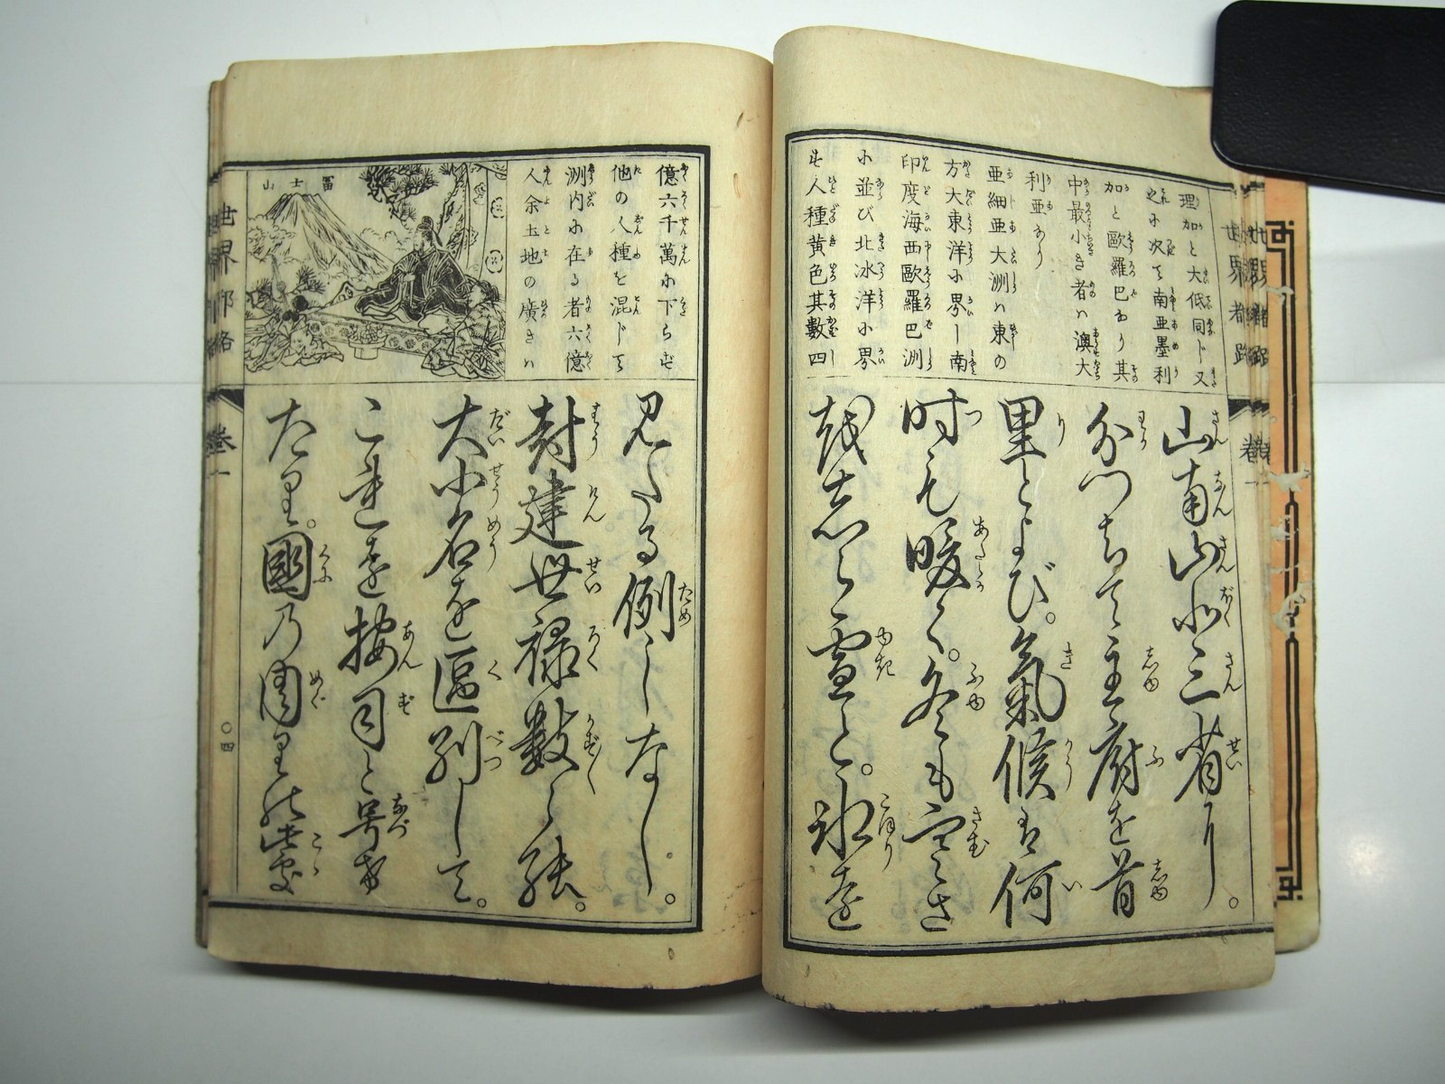 理加と大低同ド又
之に次て南亜墨利
加と歐羅巴あり其
中最小き者ハ澳大
利亜あり
亜細亜大洲ハ東の
方大東洋に界し南
印度海西歐羅巴洲
に並び北冰洋に界
も人種黄色其數四
山南山北三省に。
分つちて主府を首
里とよび。氣候は何
時も暖く。冬も寒さ
越志ら雪と。氷を
億六千萬に下らず
他の人種を混じて
洲内に在る者六億
人余土地の廣きハ
冨士山
見たる例しなし。
封建世禄數々綿。
大小名を區別して。
これを按司と号け
たり。國の周り
世界都路
卷一
〇四
世界都路
卷一